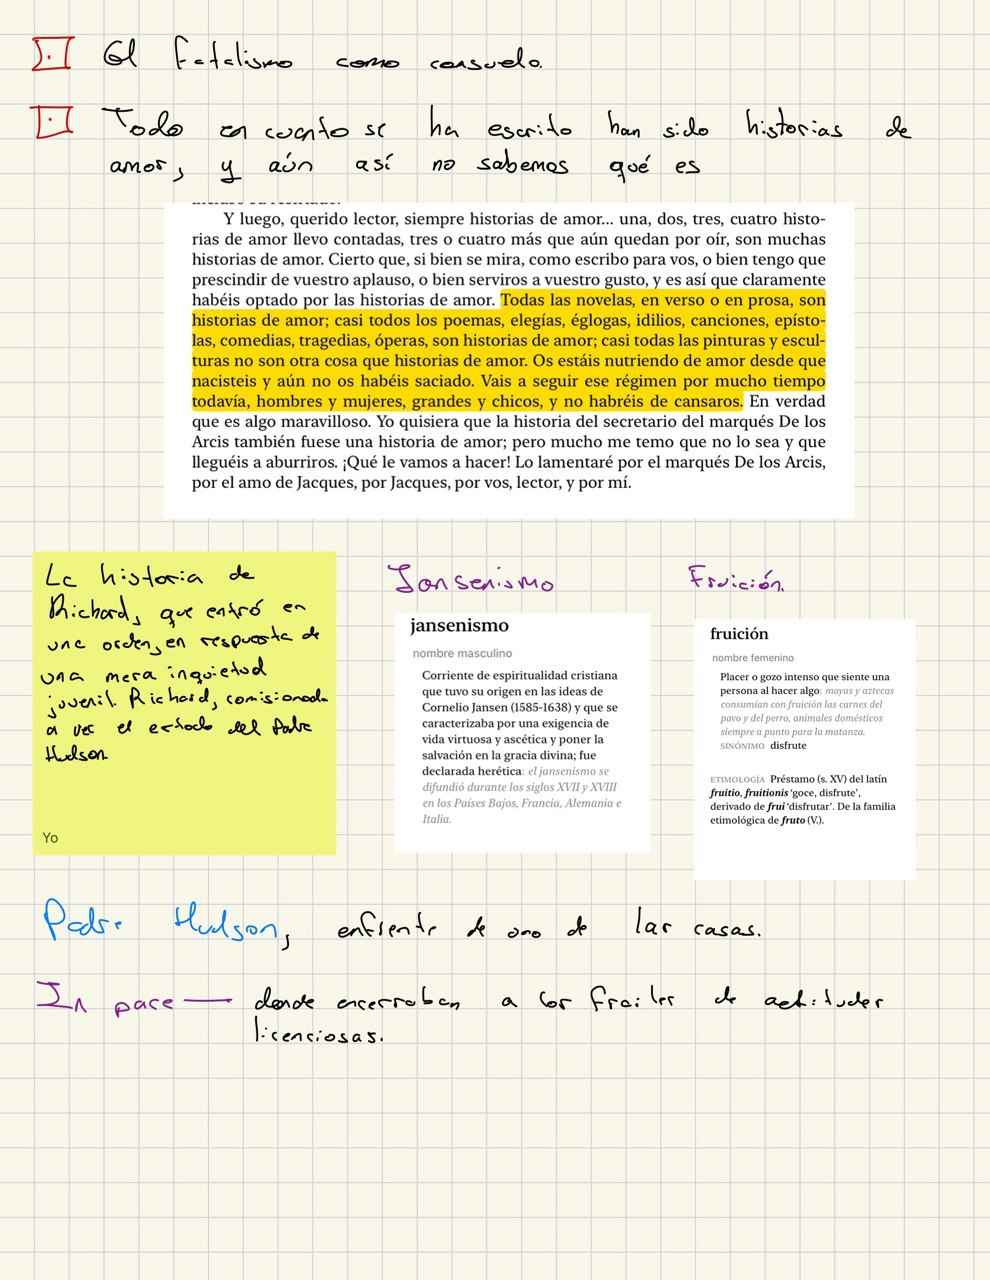 El fatalismo como consuelo.
Todo en cuanto se ha escrito han sido historias de
amor, y aún así no sabemos qué es
Y luego, querido lector, siempre historias de amor... una, dos, tres, cuatro histo-
rias de amor llevo contadas, tres o cuatro más que aún quedan por oír, son muchas
historias de amor. Cierto que, si bien se mira, como escribo para vos, o bien tengo que
prescindir de vuestro aplauso, o bien serviros a vuestro gusto, y es así que claramente
habéis optado por las historias de amor. Todas las novelas, en verso o en prosa, son
historias de amor; casi todos los poemas, elegías, églogas, idilios, canciones, epísto-
las, comedias, tragedias, óperas, son historias de amor; casi todas las pinturas y escul-
turas no son otra cosa que historias de amor. Os estáis nutriendo de amor desde que
nacisteis y aún no os habéis saciado. Vais a seguir ese régimen por mucho tiempo
todavía, hombres y mujeres, grandes y chicos, y no habréis de cansaros. En verdad
que es algo maravilloso. Yo quisiera que la historia del secretario del marqués De los
Arcis también fuese una historia de amor; pero mucho me temo que no lo sea y que
lleguéis a aburriros. ¡Qué le vamos a hacer! Lo lamentaré por el marqués De los Arcis,
por el amo de Jacques, por Jacques, por vos, lector, y por mí.
La historia de
Richard, que entró en
una orden, en respuesta de
una mera inquietud
juvenil. Richard, comisionado
a ver el estado del Padre
Hudson
Yo
Jansenismo
jansenismo
nombre masculino
Corriente de espiritualidad cristiana
que tuvo su origen en las ideas de
Cornelio Jansen (1585-1638) y que se
caracterizaba por una exigencia de
vida virtuosa y ascética y poner la
salvación en la gracia divina; fue
declarada herética: el jansenismo se
difundió durante los siglos XVII y XVIII
en los Países Bajos, Francia, Alemania e
Italia.
Fruición.
fruición
nombre femenino
Placer o gozo intenso que siente una
persona al hacer algo: mayas y aztecas
consumían con fruición las carnes del
pavo y del perro, animales domésticos
siempre a punto para la matanza.
SINÓNIMO disfrute
ETIMOLOGÍA Préstamo (s. XV) del latín
fruitio, fruitionis 'goce, disfrute',
derivado de frui 'disfrutar'. De la familia
etimológica de fruto (V.).
Padre Hudson, enfrente de uno de las casas.
In pace — donde encerraban a los frailes de actitudes
licenciosas.